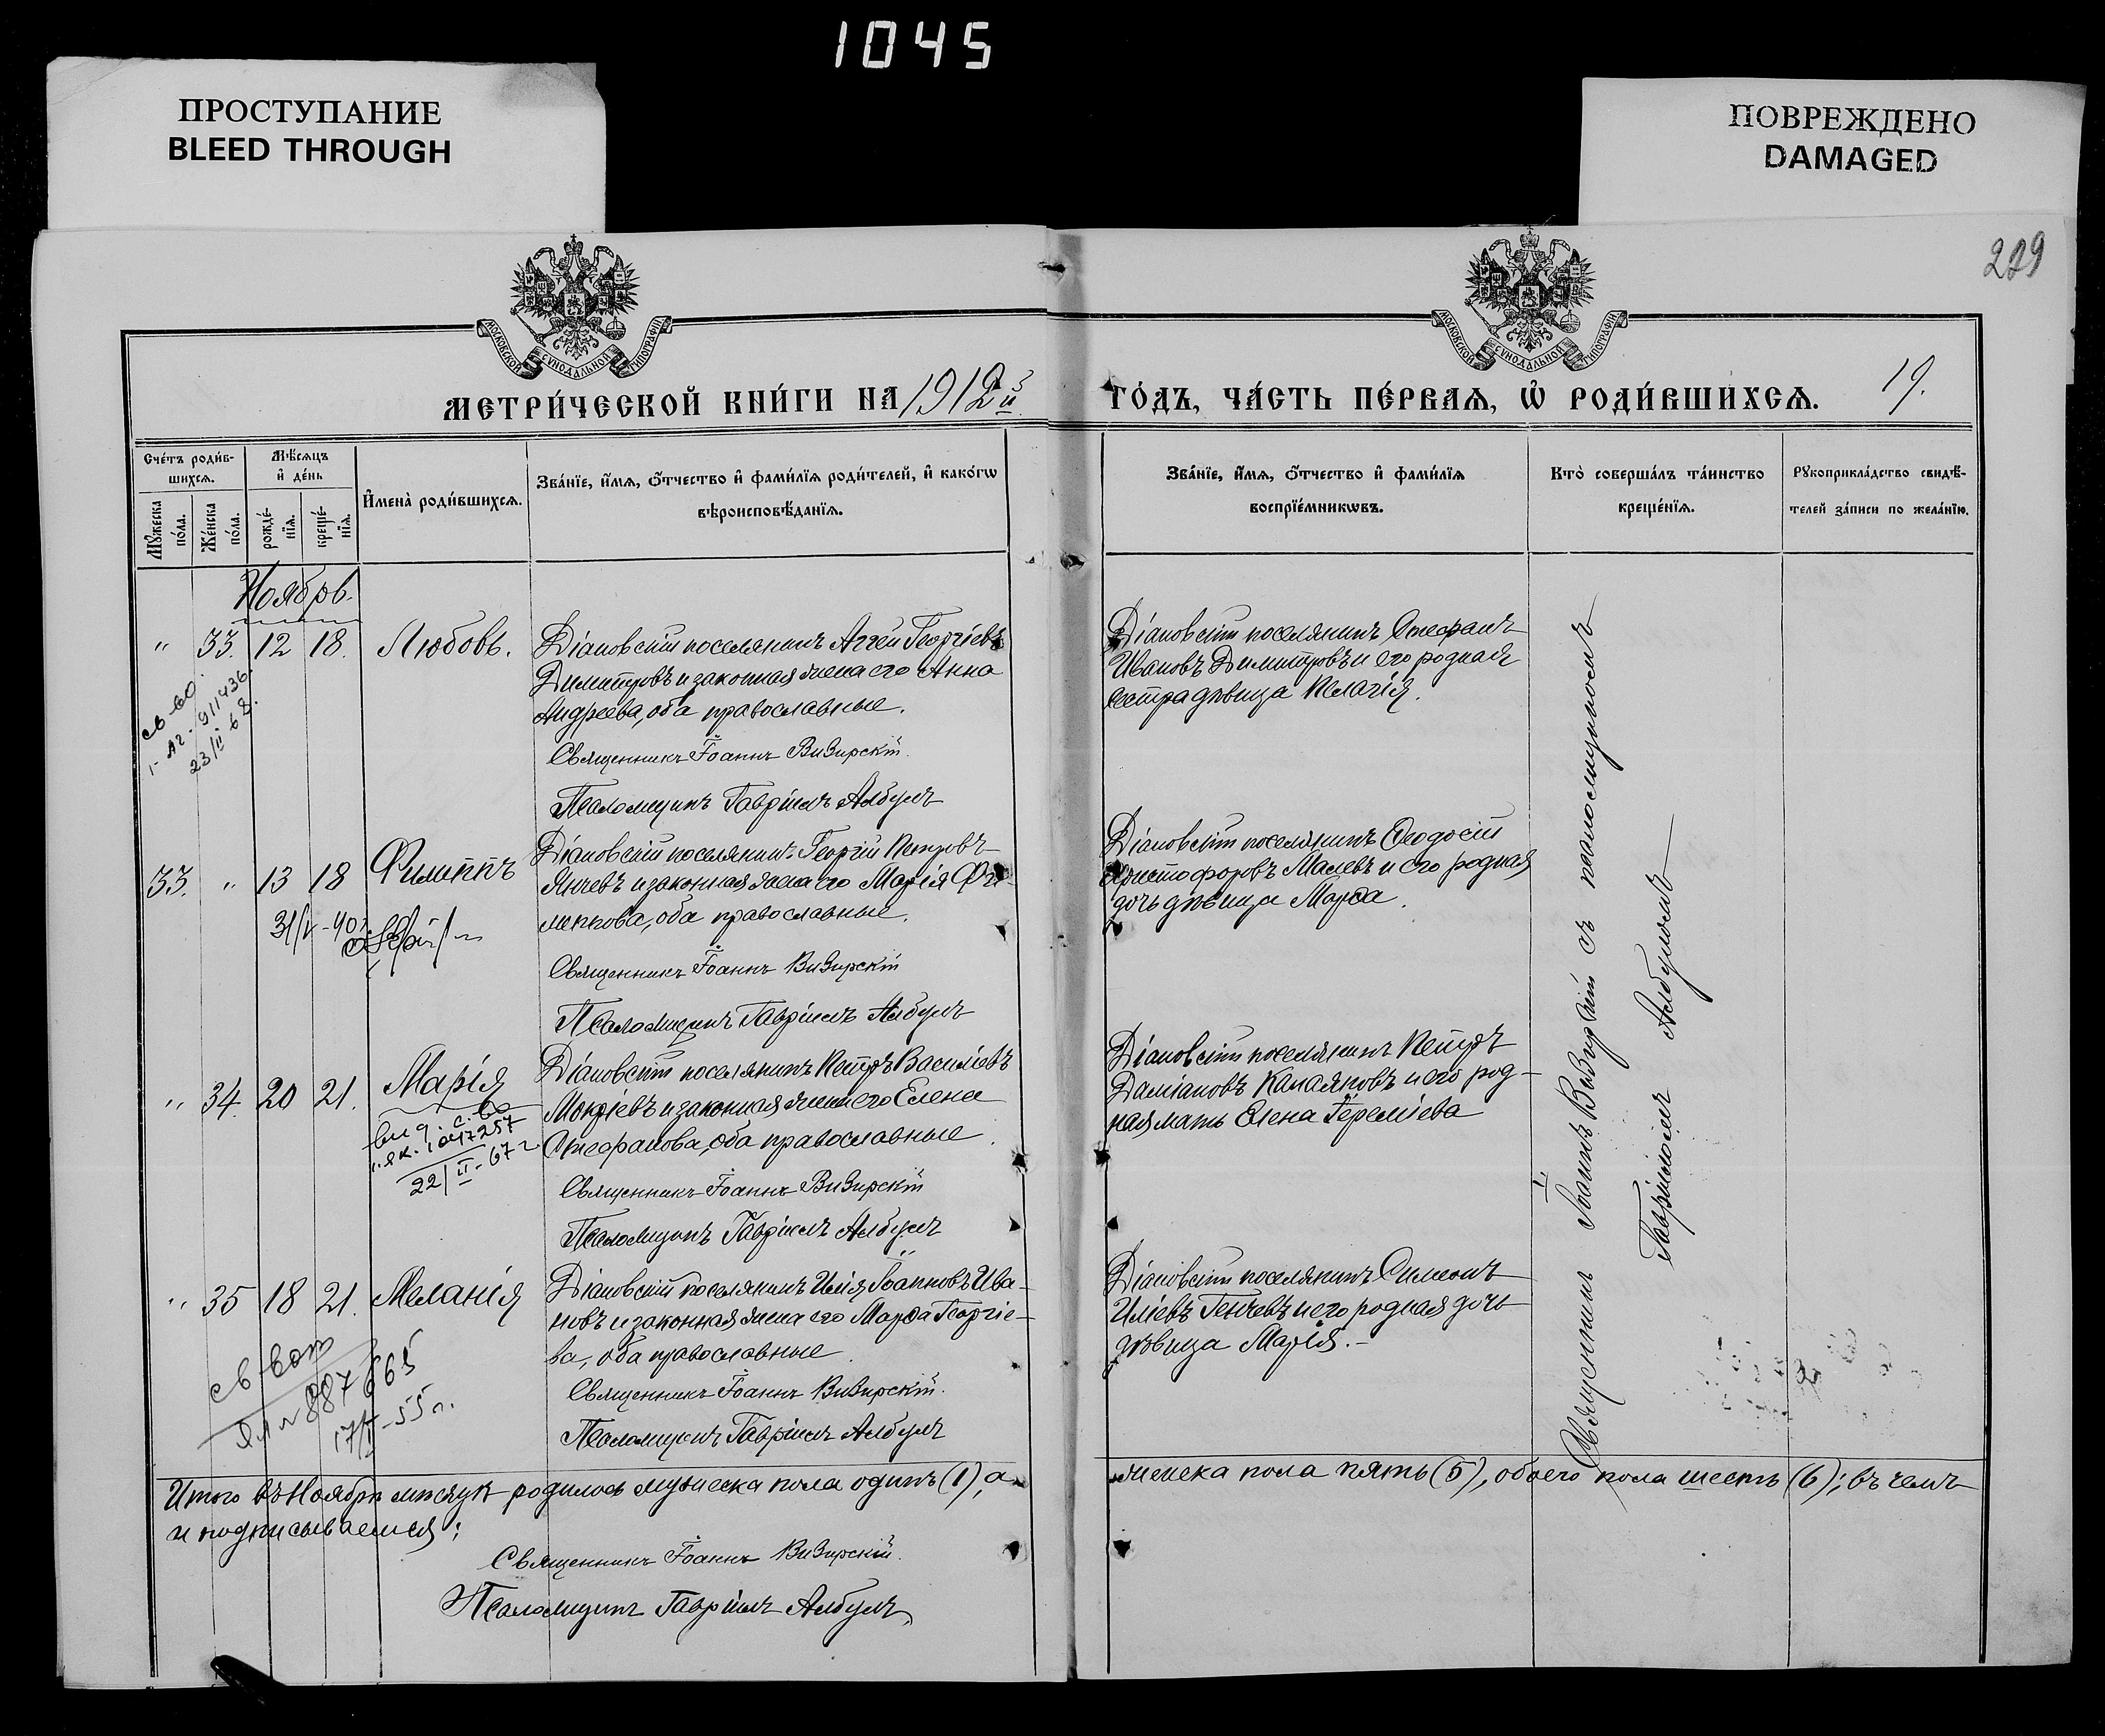 1045
ПРОСТУПАНИЕ
BLEED THROUGH
ПОВРЕЖДЕНО
DAMAGED
229
МОСКОВСКОЙ СѴНОДАЛЬНОЙ ТИПОГРАФІИ
МОСКОВСКОЙ СѴНОДАЛЬНОЙ ТИПОГРАФІИ
МЕТРИ́ЧЕСКОЙ КНИ́ГИ НА 1912й
ГО́ДЪ, ЧА́СТЬ ПЕ́РВАѦ, Ѡ҆ РОДИ́ВШИХСѦ.
19.
Сче́тъ роди́в-
шихсѧ.
Мꙋ́жеска
по́ла.
Же́нска
по́ла.
Мѣ́сѧцъ
и҆ де́нь
рожде́-
нїѧ.
креще́-
нїѧ.
И҆мена̀ роди́вшихсѧ.
Зва́нїе, и҆́мѧ, ѻ҆́тчество и҆ фами́лїѧ роди́телей, и҆ како́гѡ
вѣроисповѣ́данїѧ.
Зва́нїе, и҆́мѧ, ѻ҆́тчество и҆ фами́лїѧ
воспрїе́мникѡвъ.
Кто̀ соверша́лъ та́инство
креще́нїѧ.
Рꙋкоприкла́дство свидѣ́-
телей за́писи по жела́нїю.
Ноябрь.
" 33. 12 18. Любовь.
Діановскій поселянинъ Аггей Георгіевъ
Димитровъ и законная жена его Анна
Андреева, оба православные.
Священникъ Іоаннъ Визирскій.
Псаломщикъ Гавріилъ Албулъ
Діановскій поселянинъ Стефанъ
Ивановъ Димитровъ и его родная
сестра дѣвица Пелагія.
св-во
911436
23/II 68.
33. " 13 18 Филиппъ
Діановскій поселянинъ Георгій Петровъ
Янчевъ и законная жена его Марія Фи-
липпова, оба православные.
Священникъ Іоаннъ Визирскій
Псаломщикъ Гавріилъ Албулъ
Діановскій поселянинъ Ѳеодосій
Христофоровъ Малевъ и его родная
дочь дѣвица Марѳа.
31/V-40
" 34. 20 21. Марія
Діановскій поселянинъ Петръ Василіевъ
Мокріевъ и законная жена его Елена
Стефанова, оба православные.
Священникъ Іоаннъ Визирскій
Псаломщикъ Гавріилъ Албулъ
Діановскій поселянинъ Петръ
Даміановъ Капаяновъ и его род-
ная мать Елена Іереміева
вид. с-во
1047257
22/II-67 г
" 35 18 21. Меланія
Діановскій поселянинъ Илія Іоанновъ Ива-
новъ и законная жена его Марѳа Георгіе-
ва, оба православные.
Священникъ Іоаннъ Визирскій.
Псаломщикъ Гавріилъ Албулъ
Діановскій поселянинъ Симеонъ
Иліевъ Генчевъ и его родная дочь
дѣвица Марія.-
св-во
887665
17/II-55г.
Священникъ Іоаннъ Визирскій съ псаломщикомъ
Гавріиломъ Албуломъ
Итого въ Ноябрѣ мѣсяцѣ родилось мужеска пола одинъ (1), а
женска пола пять (5), обоего пола шесть (6); въ чемъ
и подписываемся:
Священникъ Іоаннъ Визирскій.
Псаломщикъ Гавріилъ Албулъ.